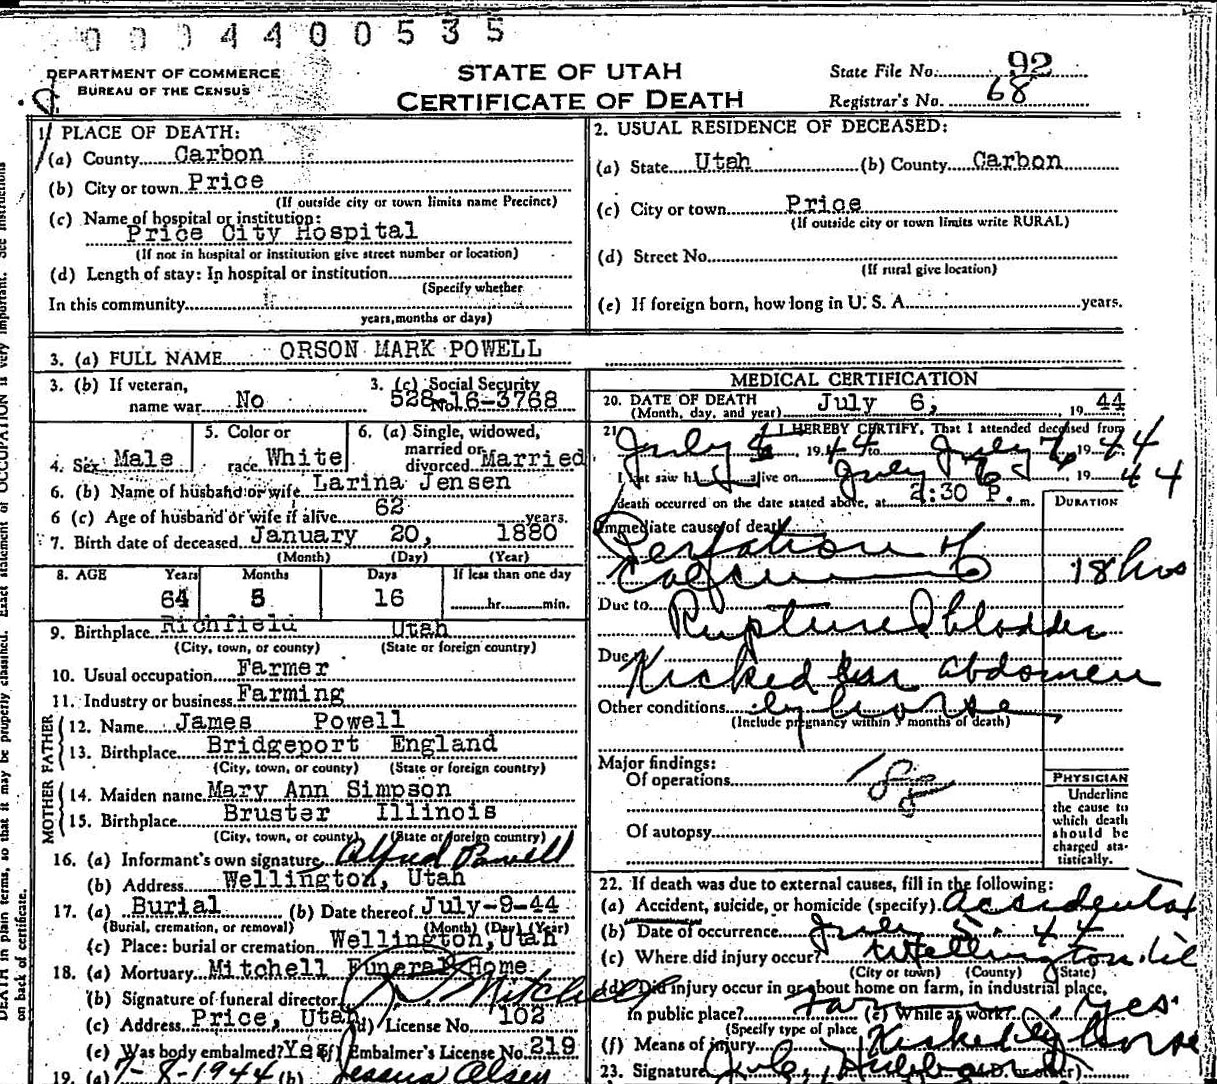 0004400535
DEPARTMENT OF COMMERCE
BUREAU OF THE CENSUS
STATE OF UTAH
CERTIFICATE OF DEATH
State File No. 92
Registrar's No. 68
1. PLACE OF DEATH:
(a) County Carbon
(b) City or town Price
(If outside city or town limits name Precinct)
(c) Name of hospital or institution:
Price City Hospital
(If not in hospital or institution give street number or location)
(d) Length of stay: In hospital or institution
(Specify whether
In this community
years, months or days)
2. USUAL RESIDENCE OF DECEASED:
(a) State Utah (b) County Carbon
(c) City or town Price
(If outside city or town limits write RURAL)
(d) Street No.
(If rural give location)
(e) If foreign born, how long in U. S. A. years.
3. (a) FULL NAME ORSON MARK POWELL
3. (b) If veteran,
name war No
3. (c) Social Security
No. 528-16-3768
4. Sex Male
5. Color or
race White
6. (a) Single, widowed,
married or
divorced Married
6. (b) Name of husband or wife Larina Jensen
6 (c) Age of husband or wife if alive 62 years.
7. Birth date of deceased January 20, 1880
(Month) (Day) (Year)
8. AGE Years Months Days If less than one day
64 5 16 hr. min.
9. Birthplace Richfield Utah
(City, town, or county) (State or foreign country)
10. Usual occupation Farmer
11. Industry or business Farming
FATHER
12. Name James Powell
13. Birthplace Bridgeport England
(City, town, or county) (State or foreign country)
MOTHER
14. Maiden name Mary Ann Simpson
15. Birthplace Bruster Illinois
(City, town, or county) (State or foreign country)
16. (a) Informant's own signature Alfred Powell
(b) Address Wellington, Utah
17. (a) Burial (b) Date thereof July-9-44
(Burial, cremation, or removal) (Month) (Day) (Year)
(c) Place: burial or cremation Wellington, Utah
18. (a) Mortuary Mitchell Funeral Home
(b) Signature of funeral director Mitchell
(c) Address Price, Utah (d) License No. 102
(e) Was body embalmed? Yes (f) Embalmer's License No. 219
19. (a) 7-8-1944 (b) Olsen
MEDICAL CERTIFICATION
20. DATE OF DEATH
(Month, day, and year) July 6, 19 44
21. I HEREBY CERTIFY, That I attended deceased from
July 1944 to July 19 44
I last saw h alive on July 6, 19 44
death occurred on the date stated above, at 2:30 P. m.
DURATION
Immediate cause of death
18 hrs
Due to Ruptured bladder
Due to Kicked in abdomen
Other conditions by horse
(Include pregnancy within 3 months of death)
Major findings:
Of operations
188
Of autopsy
PHYSICIAN
Underline
the cause to
which death
should be
charged sta-
tistically.
22. If death was due to external causes, fill in the following:
(a) Accident, suicide, or homicide (specify) Accidental
(b) Date of occurrence July 5, 44
(c) Where did injury occur? Wellington
(City or town) (County) (State)
(d) Did injury occur in or about home on farm, in industrial place,
in public place? Farm (e) While at work? Yes
(Specify type of place
(f) Means of injury Kicked by Horse
23. Signature
DEATH in plain terms, so that it may be properly classified. Exact statement of OCCUPATION is very important. See instructions
on back of certificate.